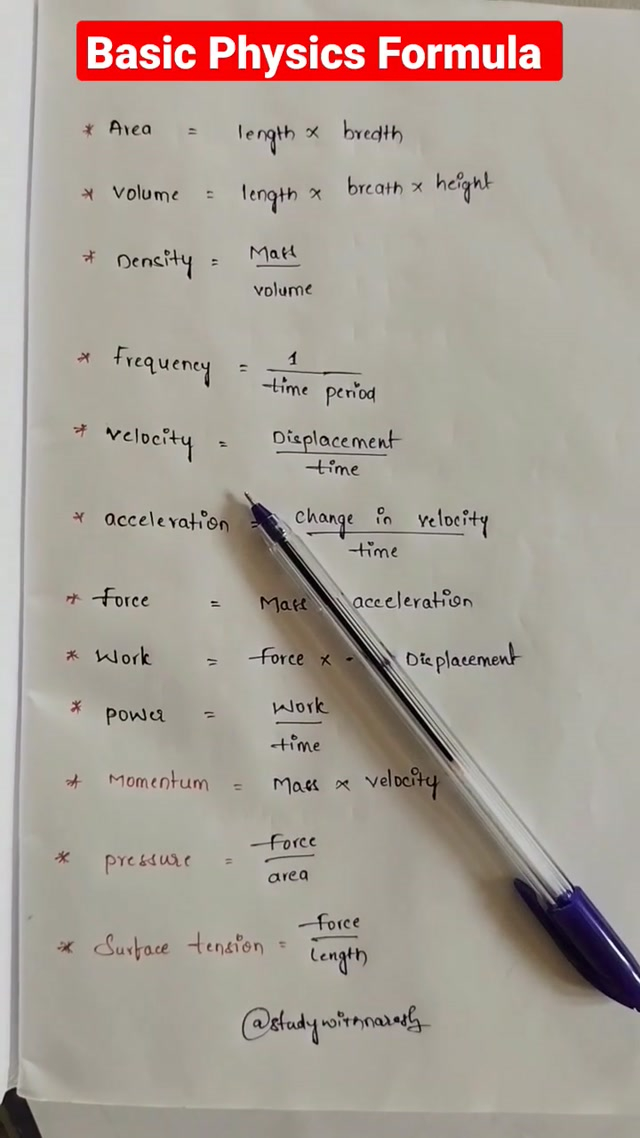 Basic Physics Formula
* Area = length × bredth
* Volume = length × breath × height
* Dencity = Mass / volume
* Frequency = 1 / time period
* Velocity = Displacement / time
* acceleration = change in velocity / time
* Force = Mass acceleration
* Work = Force × Displacement
* power = Work / time
* Momentum = Mass × velocity
* pressure = Force / area
* Surface tension = Force / Length
@studywithnaresh